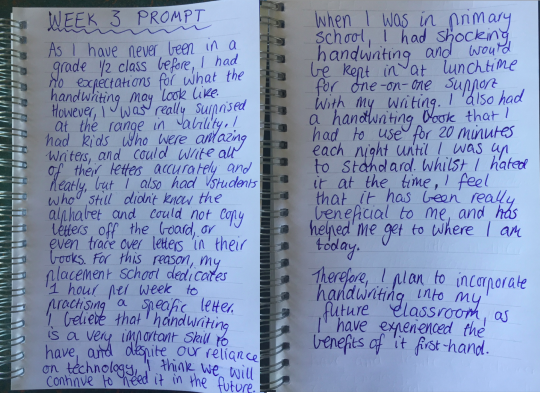 WEEK 3 PROMPT
As I have never been in a
grade 1/2 class before, I had
no expectations for what the
handwriting may look like.
However, I was really surprised
at the range in ability. I
had kids who were amazing
writers, and could write all
of their letters accurately and
neatly, but I also had students
who still didn't know the
alphabet and could not copy
letters off the board, or
even trace over letters in their
books. For this reason, my
placement school dedicates
1 hour per week to
practising a specific letter.
I believe that handwriting
is a very important skill to
have, and despite our reliance
on technology, I think we will
continue to need it in the future.
When I was in primary
school, I had shocking
handwriting and would
be kept in at lunchtime
for one-on-one support
with my writing. I also had
a handwriting book that I
had to use for 20 minutes
each night until I was up
to standard. Whilst I hated
it at the time, I feel
that it has been really
beneficial to me, and has
helped me get to where I am
today.
Therefore, I plan to incorporate
handwriting into my
future classroom, as
I have experienced the
benefits of it first-hand.